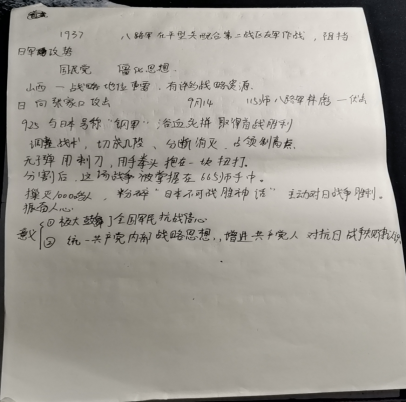 1937 八路军在平型关配合第二战区友军作战，阻挡
日军攻势
国民党 思想.
山西 — 战略地位重要. 有许多战略资源.
日 向张家口攻去 9月14 115师八路军林彪
925 与日本号称“钢军” 浴血失拼 取得首战胜利
调整战术，切成几段、分断消灭、占领制高点
无子弹用刺刀，用手拳头抱在一块扭打。
分割后，这场战争被掌握在 师手中。
1000多人，粉碎“日本不可战胜神话” 主动对日战争胜利。
振奋人心
意义 ① 极大鼓舞了全国军民抗战信心
② 统一共产党内部战略思想，增进共产党人 对抗日战争